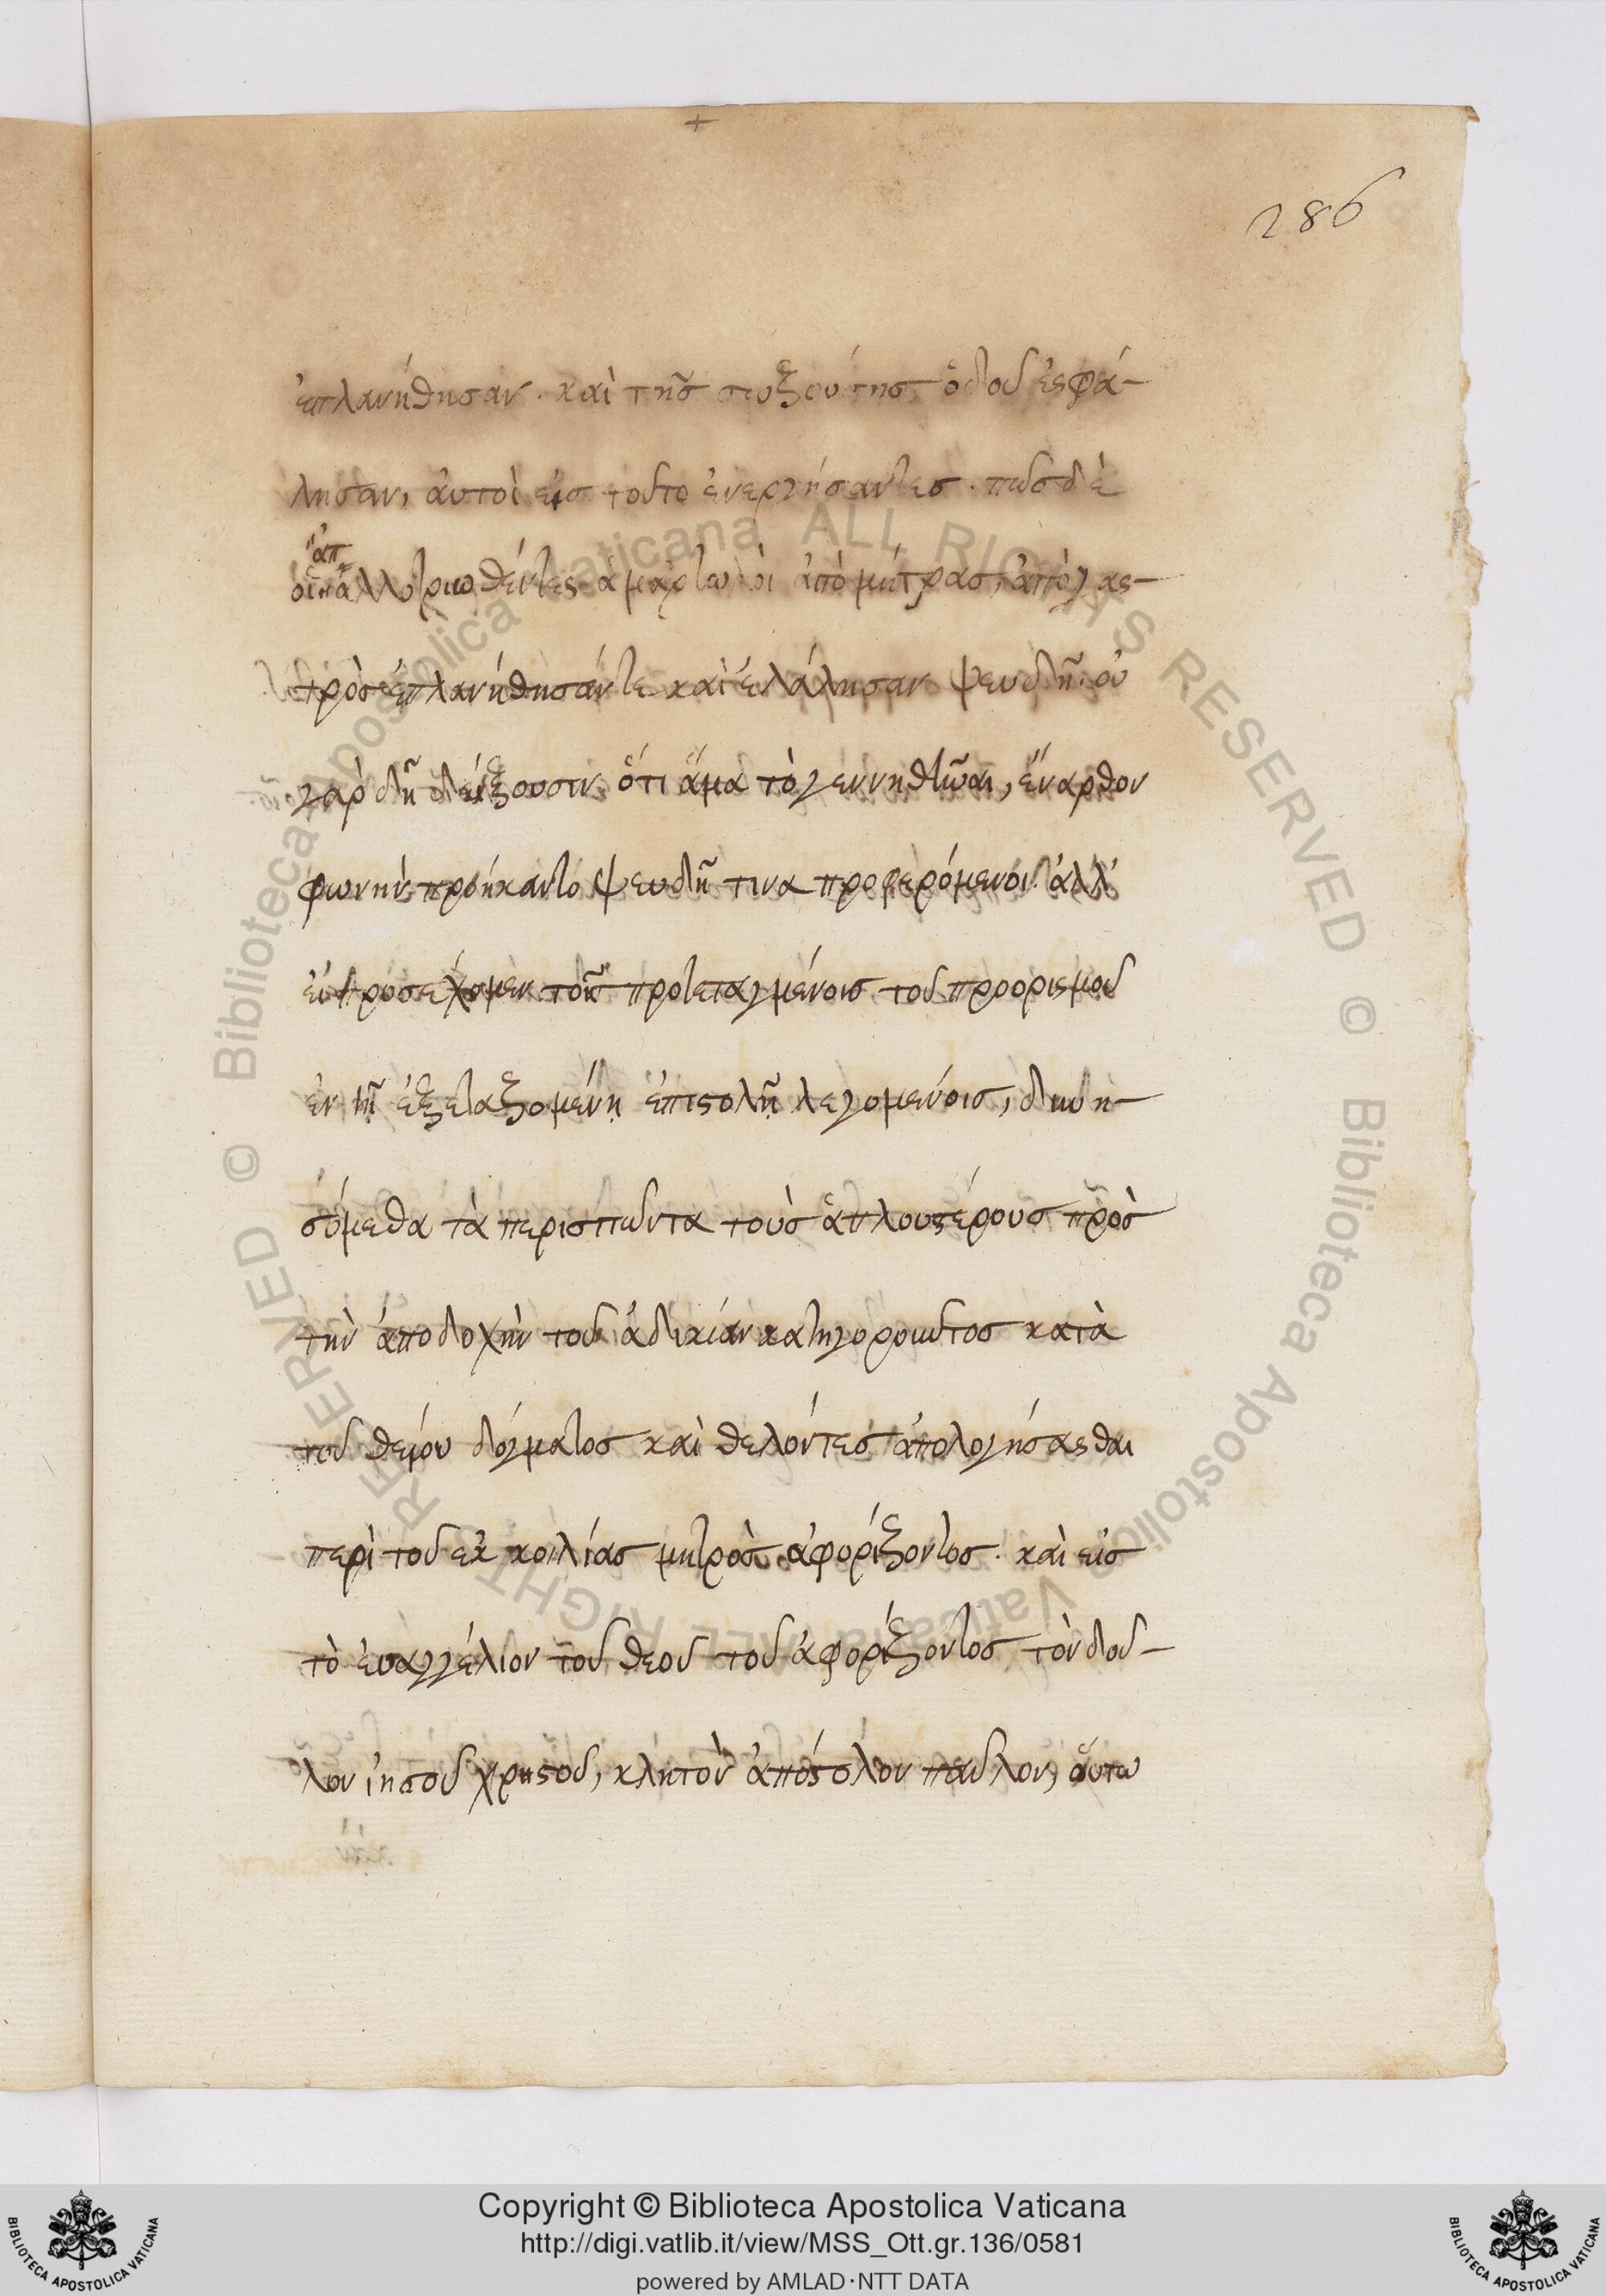 +
286
ἐπλανήθησαν. καὶ τῆς σωζούσης ὁδοῦ ἐσφά-
λησαν, αὐτοὶ εἰς τοῦτο ἐνεργήσαντες. πῶς δὲ
ἀπ
οἱ ἀλλοτριωθέντες ἁμαρτωλοὶ ἀπὸ μήτρας, ἀπὸ γας-
τρὸς ἐπλανήθησάν τε καὶ ἐλάλησαν ψευδῆ. οὐ
γὰρ δὴ δείξουσιν ὅτι ἅμα τὸ γεννηθῆναι, ἔναρθον
φωνὴν προήκαντο ψευδῆ τινα προφερόμενοι. ἀλλ'
εἰ προσέχομεν τοῖς προτεταγμένοις τοῦ προορισμοῦ
ἐν τῇ ἐξεταζομένῃ ἐπιστολῇ λεγομένοις, δυνη-
σόμεθα τὰ περισπῶντα τοὺς ἁπλουστέρους πρὸς
τὴν ἀποδοχὴν τοῦ ἀδικίαν κατηγοροῦντος κατὰ
τοῦ θείου δόγματος καὶ θελόντες ἀπολογήσασθαι
περὶ τοῦ ἐκ κοιλίας μητρὸς ἀφορίζοντος. καὶ εἰς
τὸ εὐαγγέλιον τοῦ θεοῦ τοῦ ἀφορίζοντος τὸν δοῦ-
λον ἰησοῦ χρηστοῦ, κλητὸν ἀπόστολον παῦλον, οὕτω
Copyright © Biblioteca Apostolica Vaticana
http://digi.vatlib.it/view/MSS_Ott.gr.136/0581
powered by AMLAD·NTT DATA
BIBLIOTECA APOSTOLICA VATICANA
BIBLIOTECA APOSTOLICA VATICANA
© Biblioteca Apostolica Vaticana ALL RIGHTS RESERVED © Biblioteca Apostolica Vaticana ALL RIGHTS RESERVED